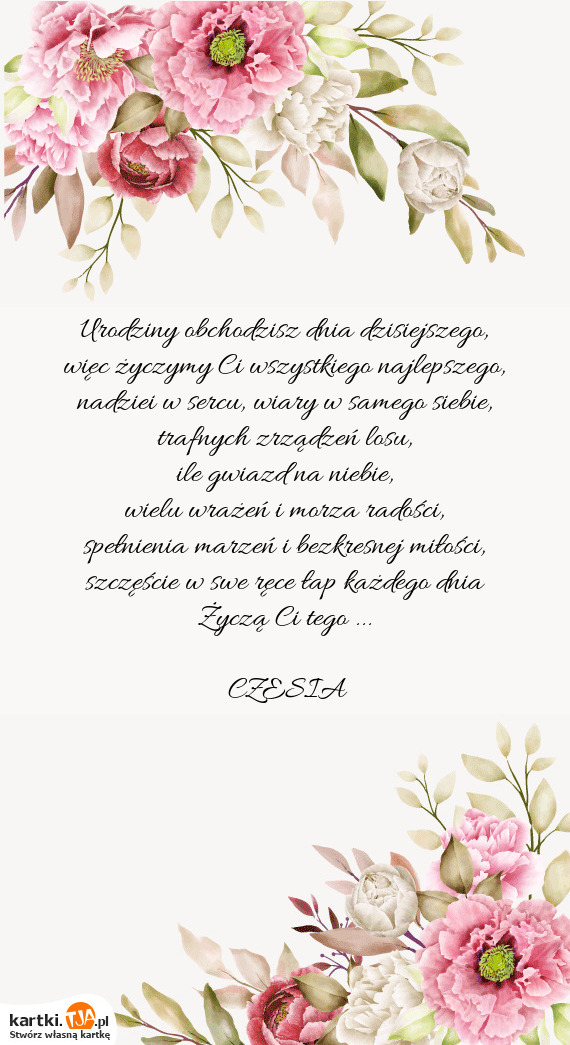 Urodziny obchodzisz dnia dzisiejszego,
więc życzymy Ci wszystkiego najlepszego,
nadziei w sercu, wiary w samego siebie,
trafnych zrządzeń losu,
ile gwiazd na niebie,
wielu wrażeń i morza radości,
spełnienia marzeń i bezkresnej miłości,
szczęście w swe ręce łap każdego dnia
Życzą Ci tego ...
CZESIA
kartki.TJA.pl
Stwórz własną kartkę